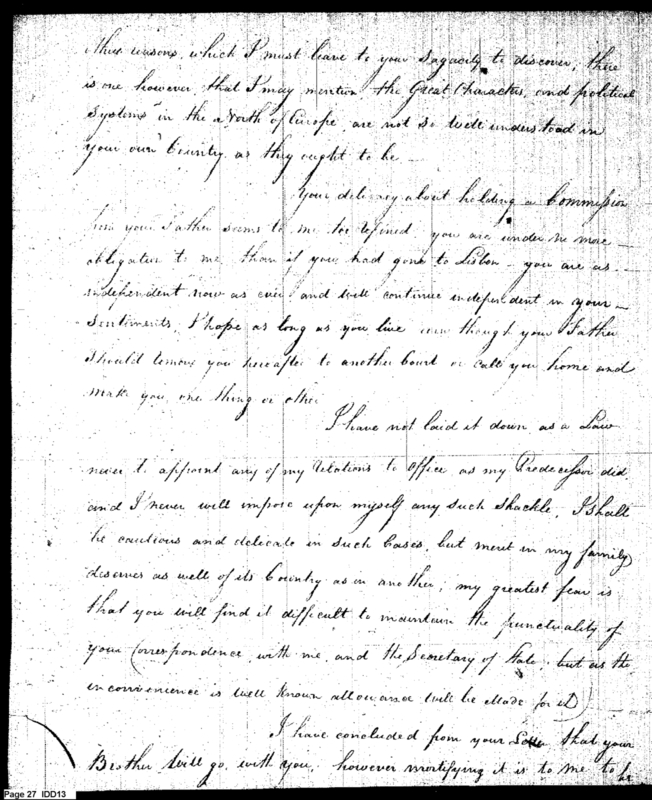 other reasons, which I must leave to your Sagacity to discover, there
is one however, that I may mention the Great Character, and political
Systems in the North of Europe, are not so well understood in
your own Country as they ought to be —
Your delicacy about holding a Commission
from your Father seems to me too refined you are under no more —
obligation to me, than if you had gone to Lisbon — you are as
independent now as ever and will continue independent in your —
Sentiments, I hope as long as you live even though your Father
should remove you hereafter to another Court or call you home and
make you one thing or other
I have not laid it down as a Law
never to appoint any of my Relations to Office, as my Predecessor did,
and I never will impose upon myself any such Shackle, I shall
be cautious and delicate in such Cases, but merit in my family
deserves as well of its Country as in another; my greatest fear is
that you will find it difficult to maintain the punctuality of
your Correspondence, with me, and the Secretary of State; but as the
inconvenience is well known allowance will be Made for it)
I have concluded from your Letter that your
Brother will go, with you, however mortifying it is to me to be
Page 27 IDD13